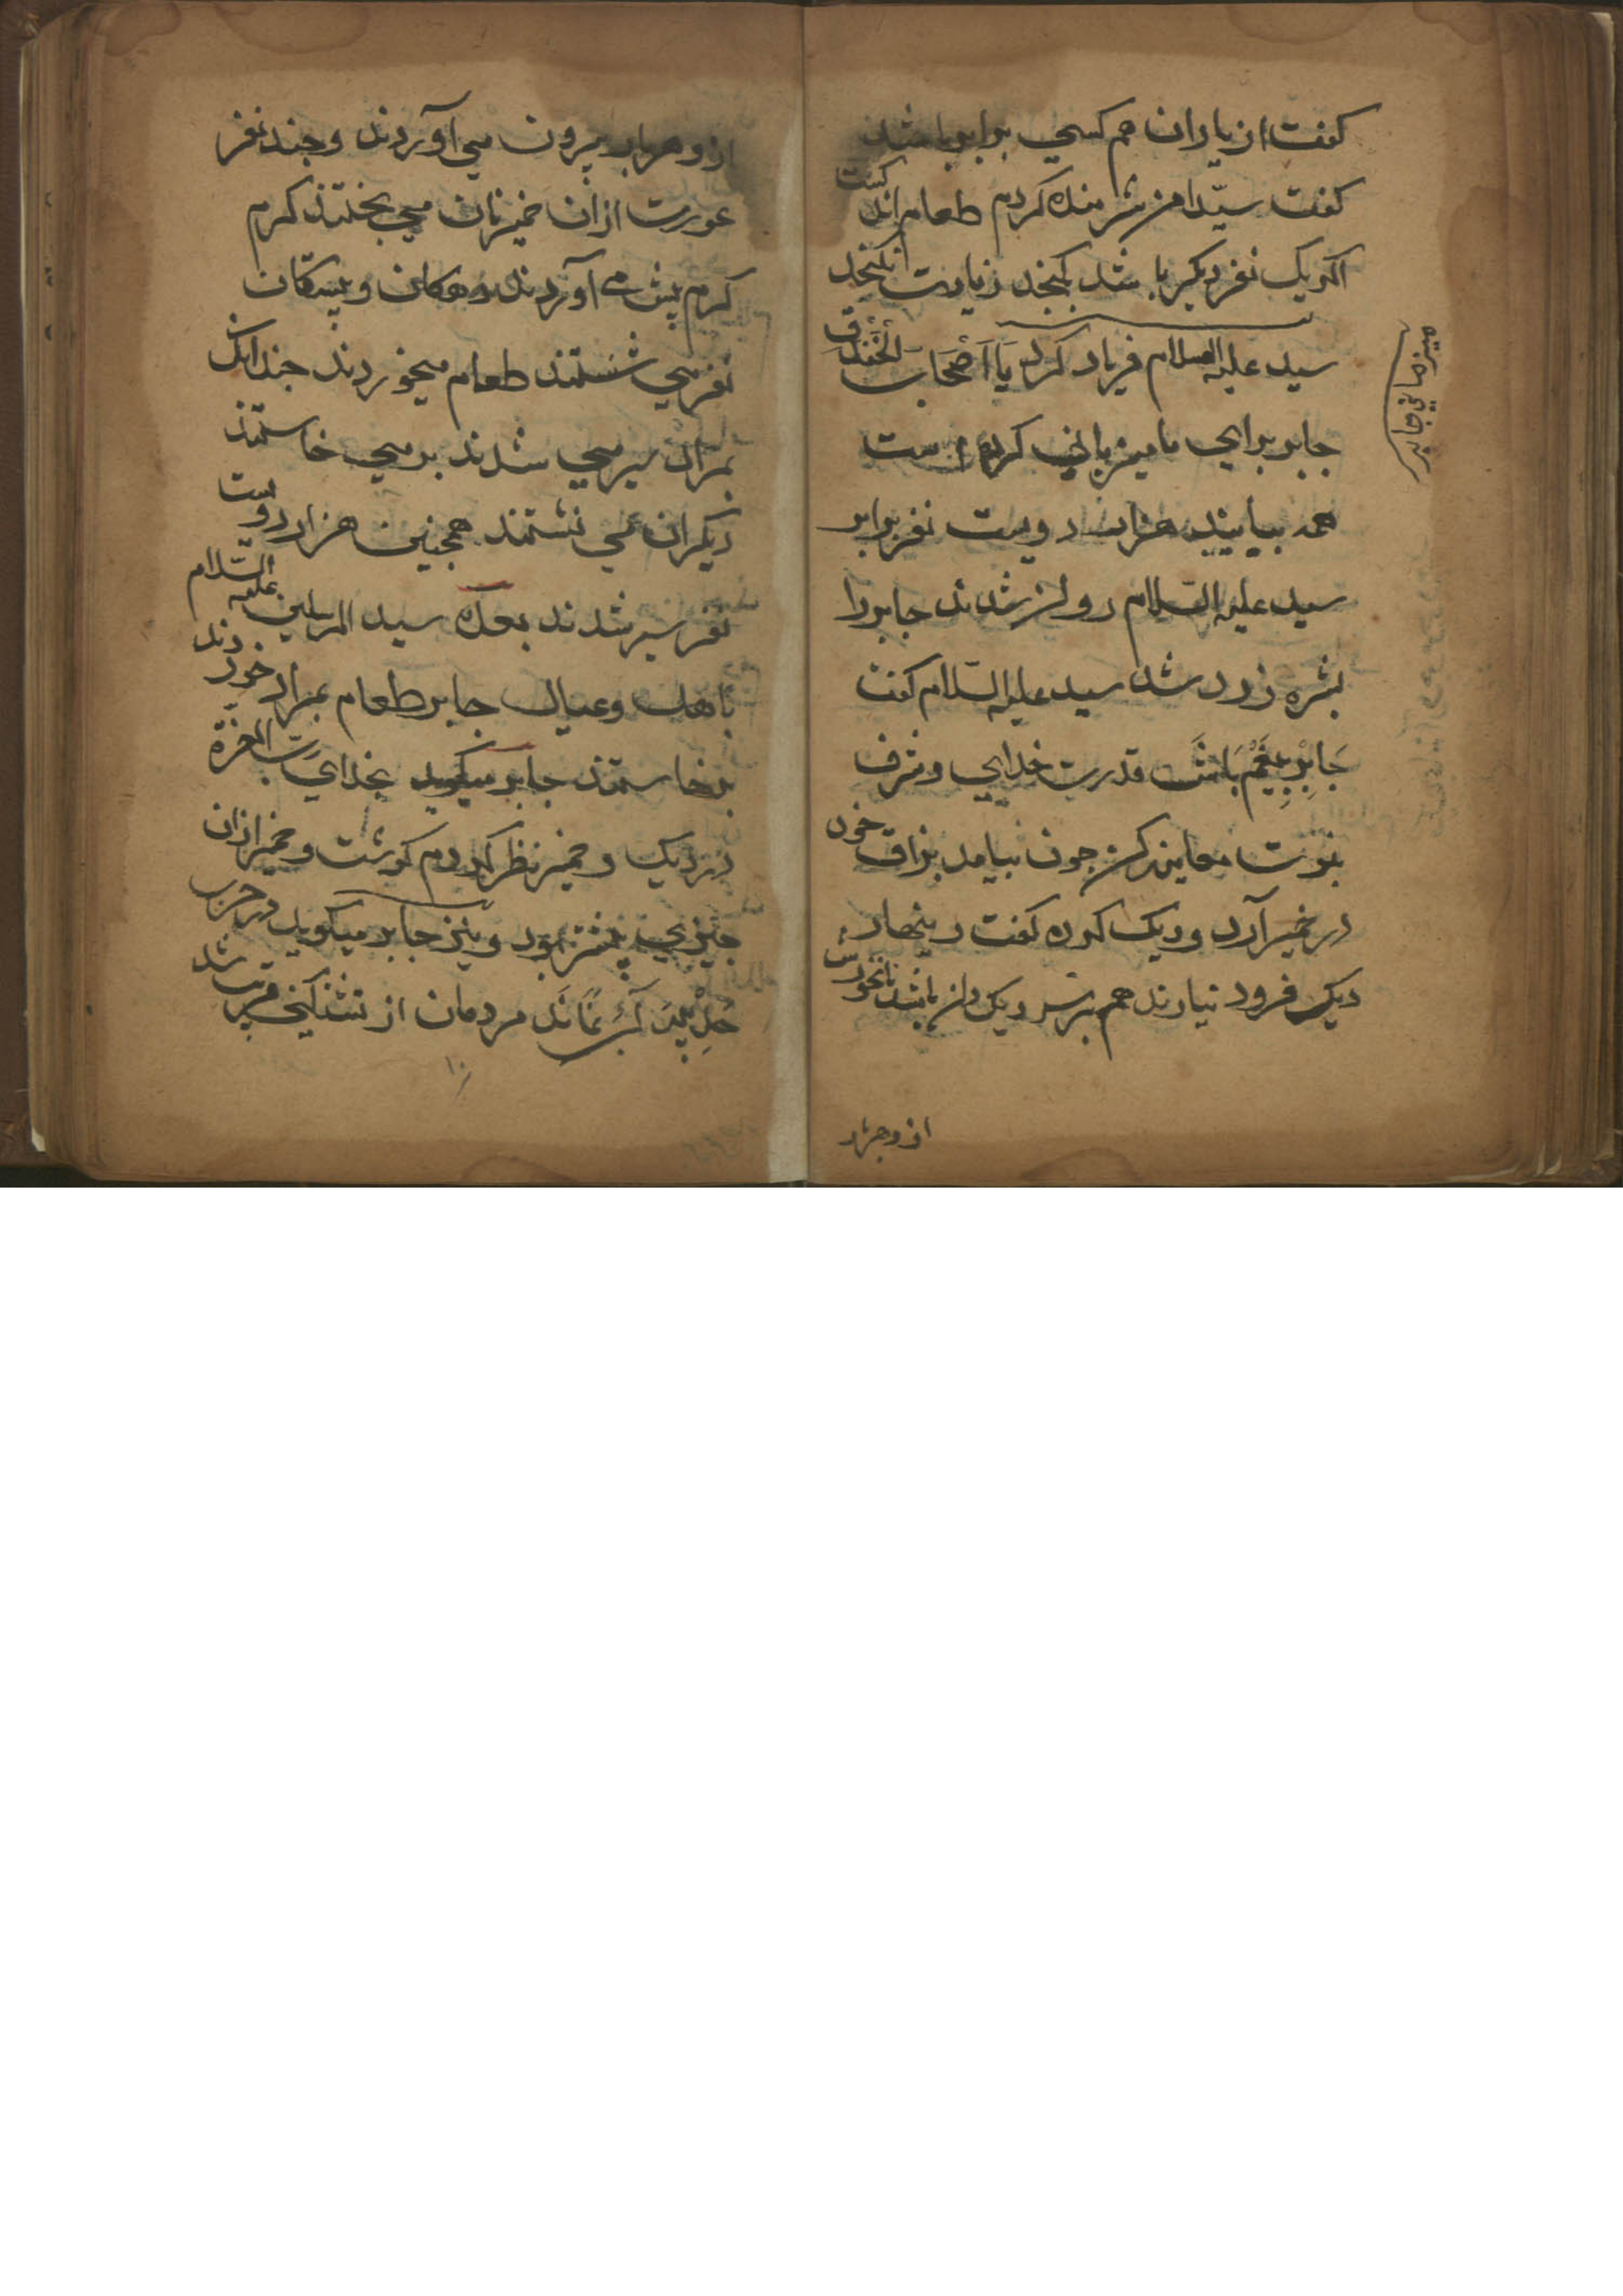 کفت از یاران هم کسی برابر باشد
کفت سیدا من شرمنده کردم طعام اندکست
اکر یک نفر دیکر باشد بکنجد زیادت نکنجد
سید علیه السلام فریاد کرد یَا اَصْحَابَ الْخَنْدَقِ
جابر برای ما میزبانی کرده است
همه بیایید هزار دویست نفر برابر
سید علیه السلام روان شدند جابر را
بشره زرد شد سید علیه السلام کفت
جَابِرْ بِیغَمْ بَاشْ قدرت خدایی و شرف
نبوت معاینه کن چون بیامد بزاق خود
در خمیر آرد و دیک کرده کفت زینهار
دیک فرود نیارند هم بر سر دیکدان باشد نانخورش
میزبانی جابر
از و هربار
از و هربار بیرون می آوردند و چند نفر
عورت ازان خمیر نان می پختند کرم
کرم پیش می آوردند دهکان و بیستکان
نفر می نشستند طعام میخوردند چندانک
بمراد سیر می شدند بر می خاستند
دیکران می نشستند همچنین هزار دویست
نفر سیر شدند بعده سید المرسلین علیه السلام
باهل و عیال جابر طعام بمراد خوردند
برخاستند جابر میکوید بخدای رَبّ العزة
در دیک و خمیر نظر کردم کوشت و خمیر ازان
چیزی بیشتر بود و نیز جابر میکوید در حرب
حُدَیْبِیَه آبْ نَمَانَد مردمان از تشنکی قریب شد